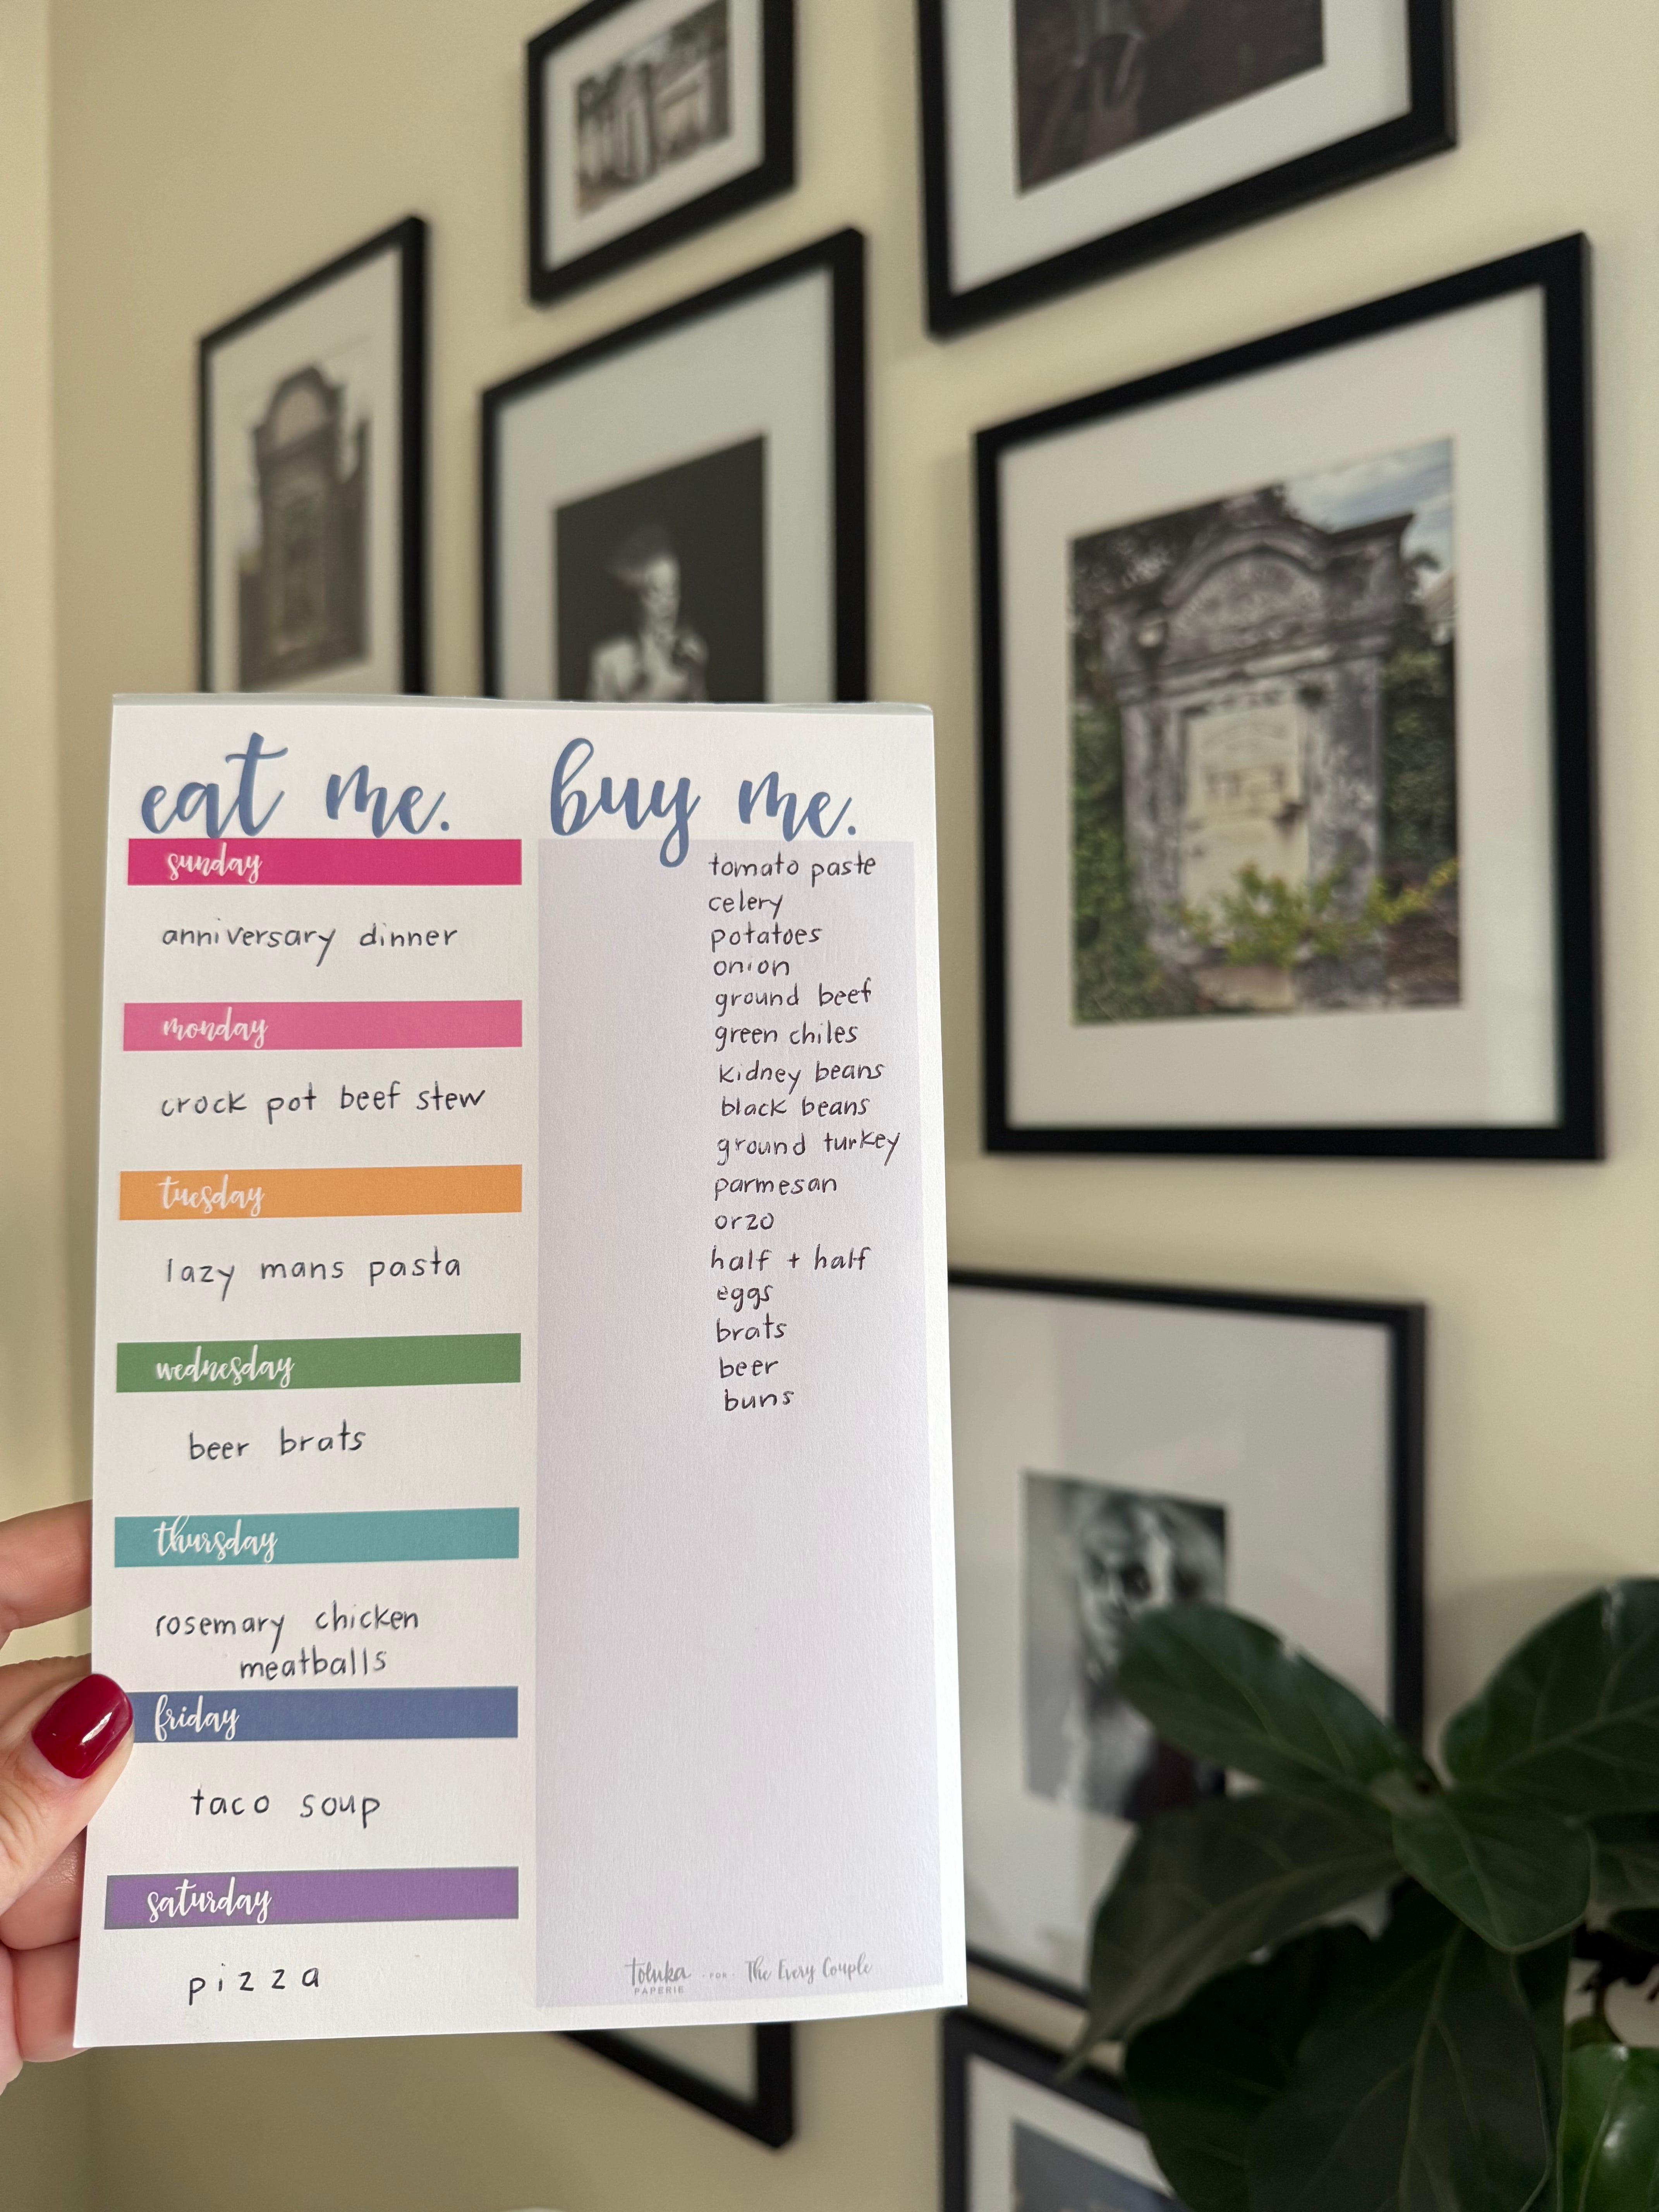 eat me.
sunday
anniversary dinner
monday
crock pot beef stew
tuesday
lazy mans pasta
wednesday
beer brats
thursday
rosemary chicken
meatballs
friday
taco soup
saturday
pizza
buy me.
tomato paste
celery
potatoes
onion
ground beef
green chiles
kidney beans
black beans
ground turkey
parmesan
orzo
half + half
eggs
brats
beer
buns
toluka PAPERIE · FOR · The Every Couple